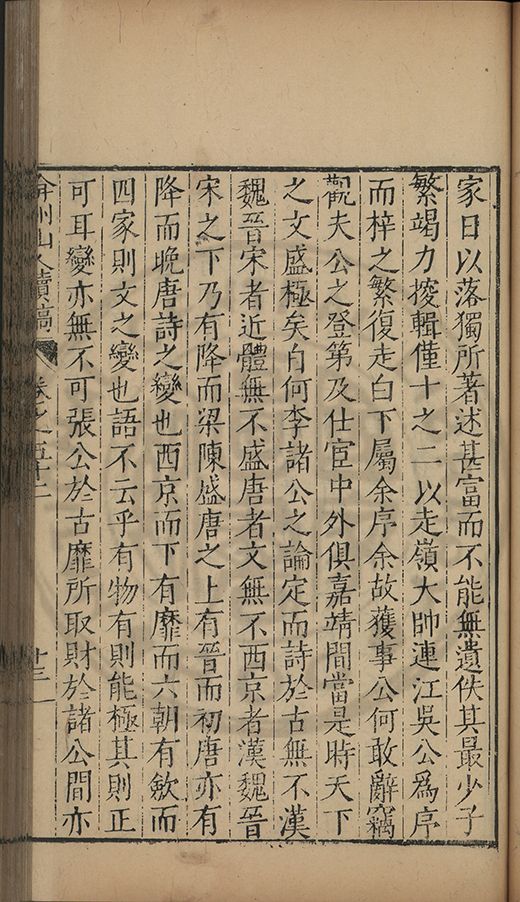 家日以落獨所著述甚富而不能無遺佚其最少子
繁竭力搜輯僅十之二以走嶺大帥連江吳公爲序
而梓之繁復走白下屬余序余故獲事公何敢辭竊
觀夫公之登第及仕宦中外俱嘉靖間當是時天下
之文盛極矣自何李諸公之論定而詩於古無不漢
魏晉宋者近體無不盛唐者文無不西京者漢魏晉
宋之下乃有降而梁陳盛唐之上有晉而初唐亦有
降而晚唐詩之變也西京而下有靡而六朝有斂而
四家則文之變也語不云乎有物有則能極其則正
可耳變亦無不可張公於古靡所取財於諸公間亦
弇州山人續稿 卷之五十二 十三